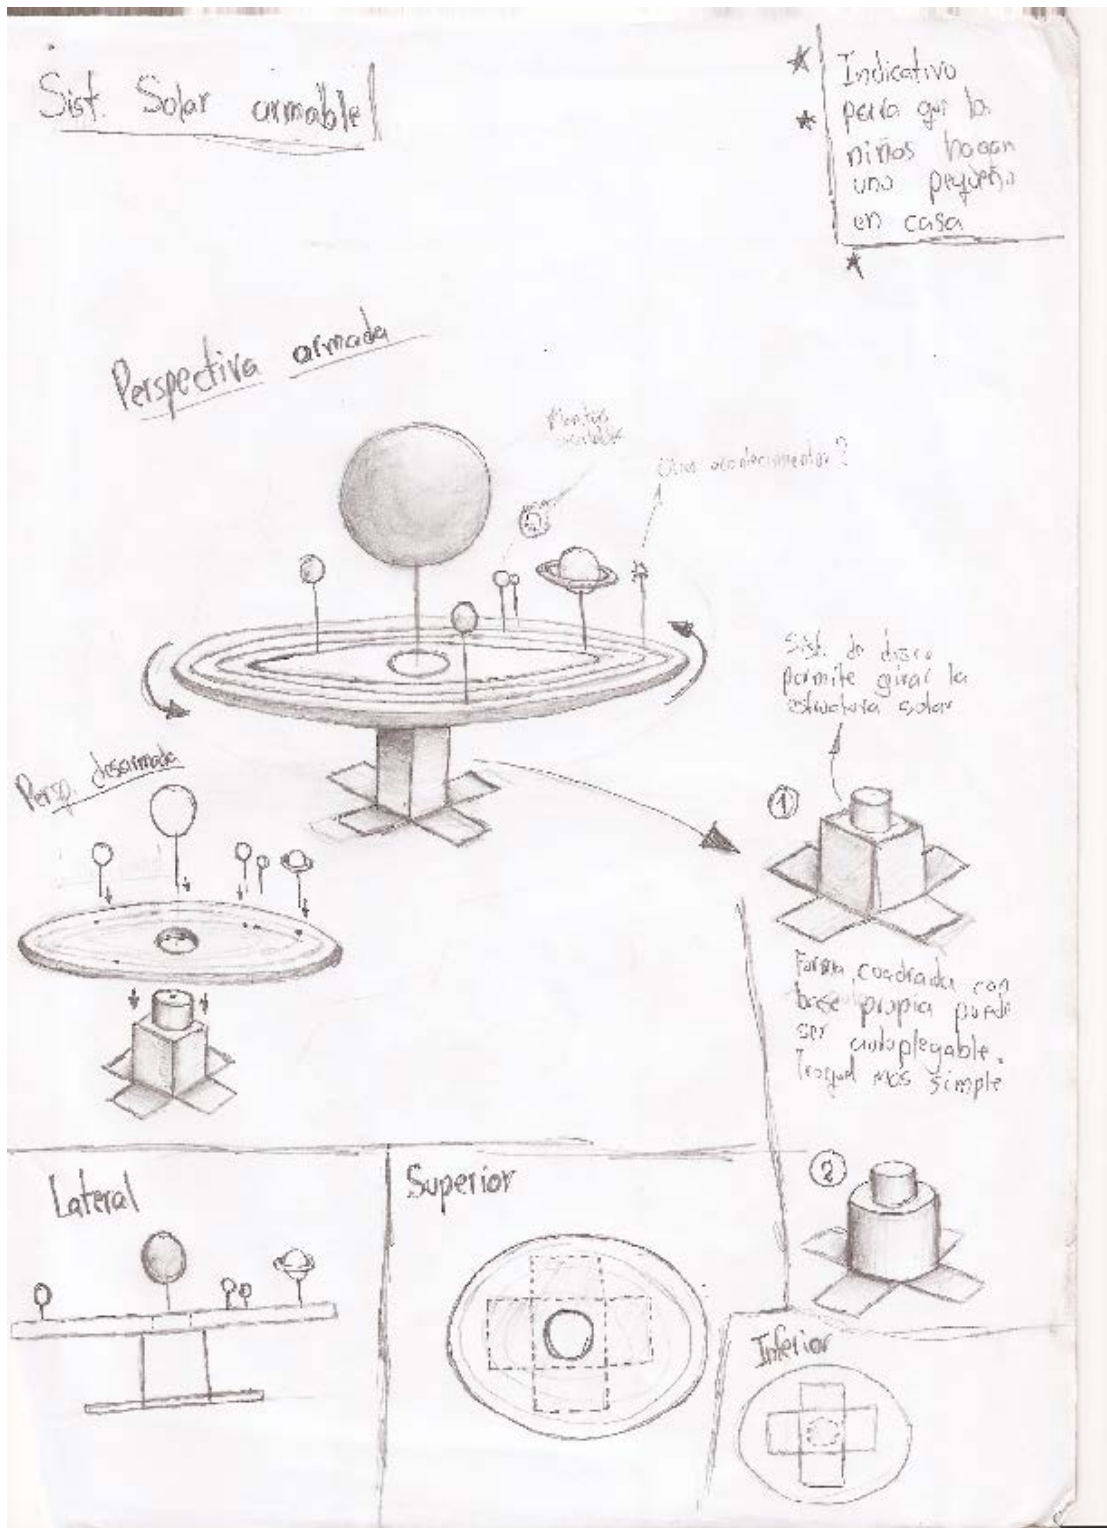 Sist. Solar armable
Indicativo
para que los
niños hagan
uno pequeño
en casa
Perspectiva armada
Otros acontecimientos?
Sist. de disco
permite girar la
estructura solar
Persp. desarmada
1
Forma cuadrada con
base propia puede
ser autoplegable.
Troquel más simple
2
Lateral
Superior
Inferior